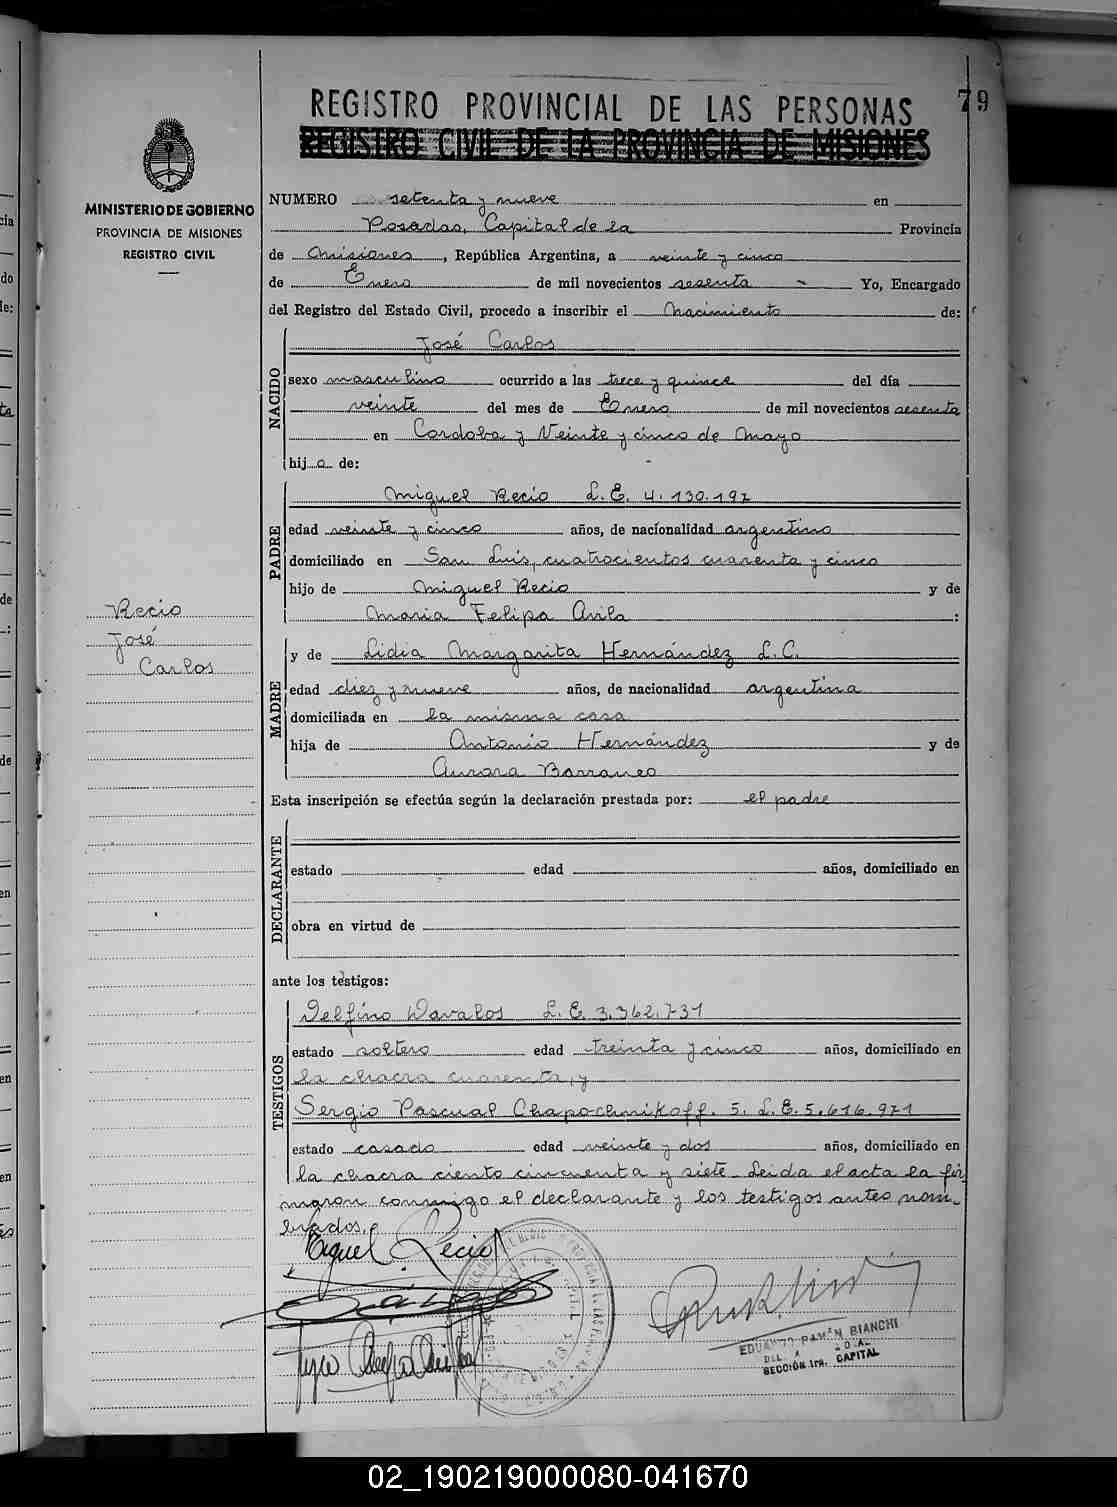 79
REGISTRO PROVINCIAL DE LAS PERSONAS
REGISTRO CIVIL DE LA PROVINCIA DE MISIONES
MINISTERIO DE GOBIERNO
PROVINCIA DE MISIONES
REGISTRO CIVIL
NUMERO setenta y nueve en
Posadas, Capital de la Provincia
de Misiones, República Argentina, a veinte y cinco
de Enero de mil novecientos sesenta - Yo, Encargado
del Registro del Estado Civil, procedo a inscribir el Nacimiento de:
NACIDO
José Carlos
sexo masculino ocurrido a las trece y quince del día
veinte del mes de Enero de mil novecientos sesenta
en Cordoba y Veinte y cinco de Mayo
hijo de:
PADRE
Miguel Recio L.E. 4.130.197
edad veinte y cinco años, de nacionalidad argentino
domiciliado en San Luis, cuatrocientos cuarenta y cinco
hijo de Miguel Recio y de
Maria Felipa Avila :
Recio
José
Carlos
MADRE
y de Lidia Margarita Hernández L.C.
edad diez y nueve años, de nacionalidad argentina
domiciliada en la misma casa
hija de Antonio Hernández y de
Aurora Barranco
Esta inscripción se efectúa según la declaración prestada por: el padre
DECLARANTE
estado edad años, domiciliado en
obra en virtud de
ante los testigos:
TESTIGOS
Delfino Davalos L.E. 3.362.731
estado soltero edad treinta y cinco años, domiciliado en
la chacra cuarenta, y
Sergio Pascual Chapochnikoff. S. L.E. 5.616.971
estado casado edad veinte y dos años, domiciliado en
la chacra ciento cincuenta y siete. Leida el acta la fir
maron conmigo el declarante y los testigos antes nom-
brados.
Miguel Recio
EDUARDO RAMÓN BIANCHI
SECCIÓN 1ra. CAPITAL
02_190219000080-041670